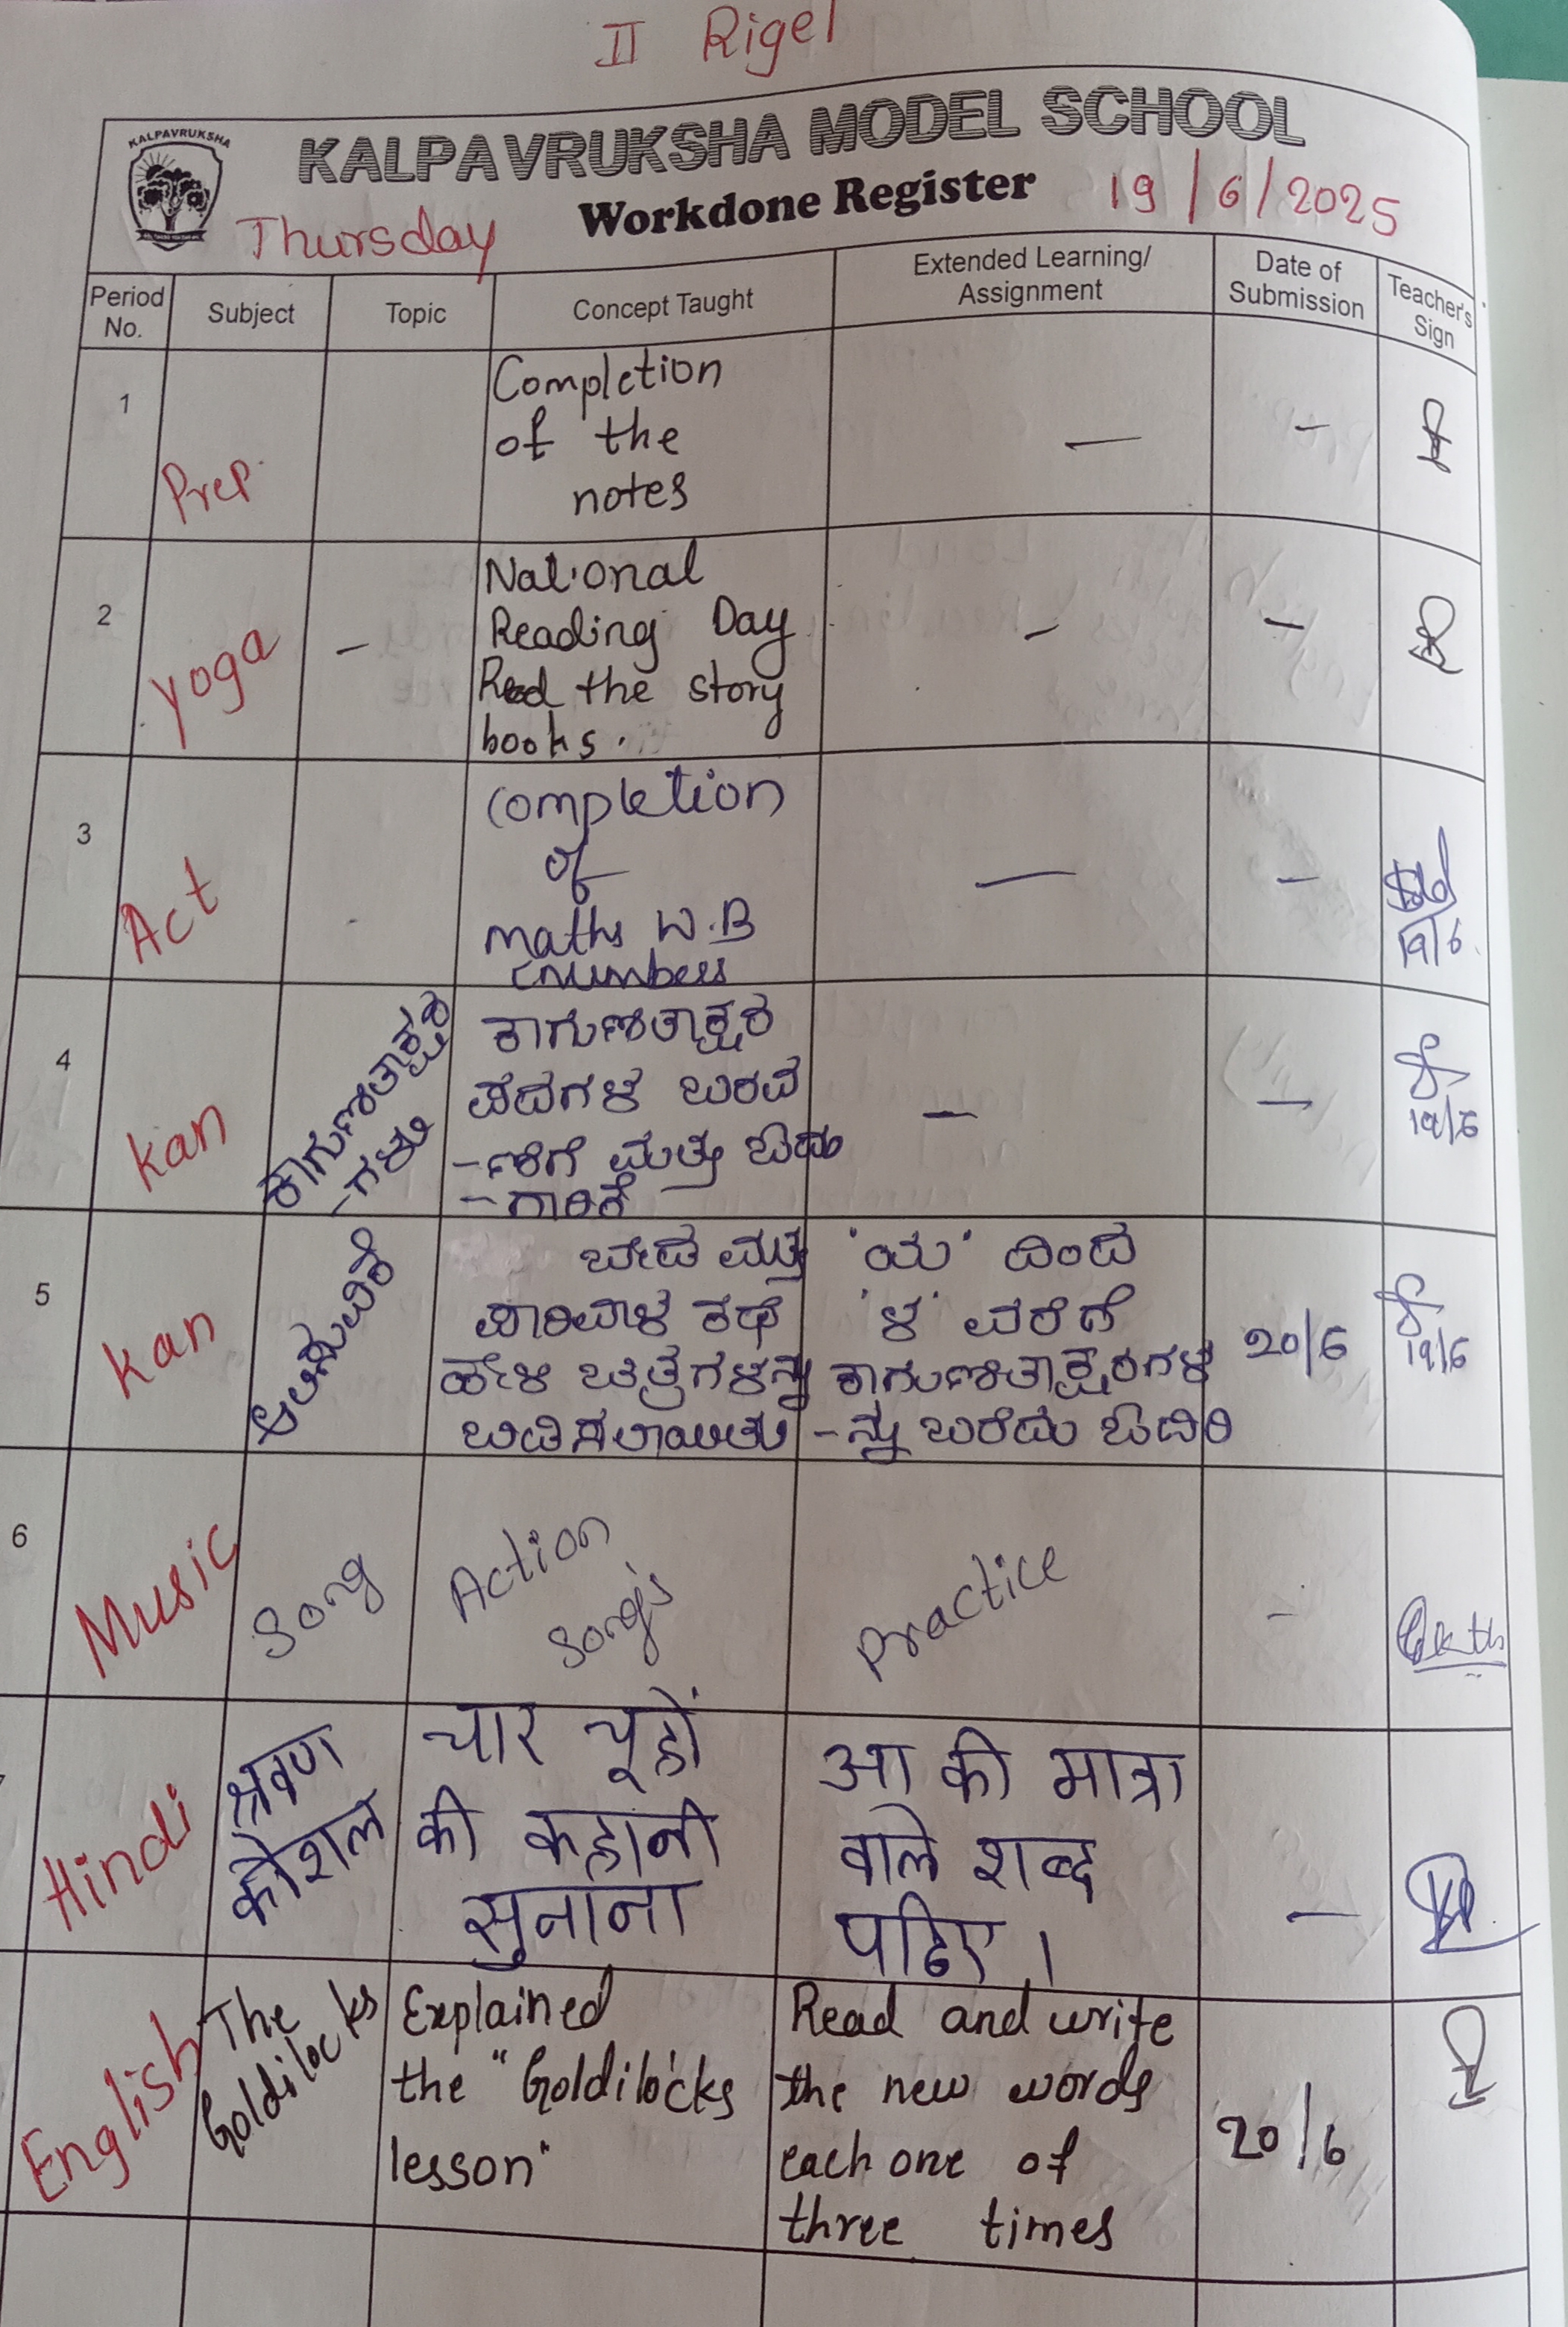 II Rigel
KALPAVRUKSHA
KALPAVRUKSHA MODEL SCHOOL
Thursday
Workdone Register
19/6/2025
Period No.
Subject
Topic
Concept Taught
Extended Learning/
Assignment
Date of
Submission
Teacher's
Sign
1
Prep
Completion
of the
notes
—
–
2
Yoga
–
National
Reading Day
Read the story
books.
–
–
3
Act
Completion
of
maths W.B
(numbers
—
–
19/6
4
kan
ಕಾಗುಣಿತಾಕ್ಷರ
-ಗಳು
ಕಾಗುಣಿತಾಕ್ಷರ
ಪದಗಳ ಬರವ
-ಣಿಗೆ ಮತ್ತು ಓದು
-ಗಾರಿಕೆ
–
–
19/6
5
kan
ಆಲಿಸುವಿಕೆ
ಬೇಡ ಮತ್ತು
ಪಾರಿವಾಳ ಕಥೆ
ಹೇಳಿ ಚಿತ್ರಗಳನ್ನು
ಬಿಡಿಸಲಾಯಿತು
'ಯ' ದಿಂದ
'ಳ' ವರೆಗೆ
ಕಾಗುಣಿತಾಕ್ಷರಗಳ
-ನ್ನು ಬರೆದು ಓದಿರಿ
20/6
19/6
6
Music
Song
Action
Song's
Practice
-
Hindi
श्रवण
कौशल
चार चूहों
की कहानी
सुनाना
आ की मात्रा
वाले शब्द
पढिए।
–
English
The
Goldilocks
Explained
the "Goldilocks
lesson"
Read and write
the new words
each one of
three times
20/6